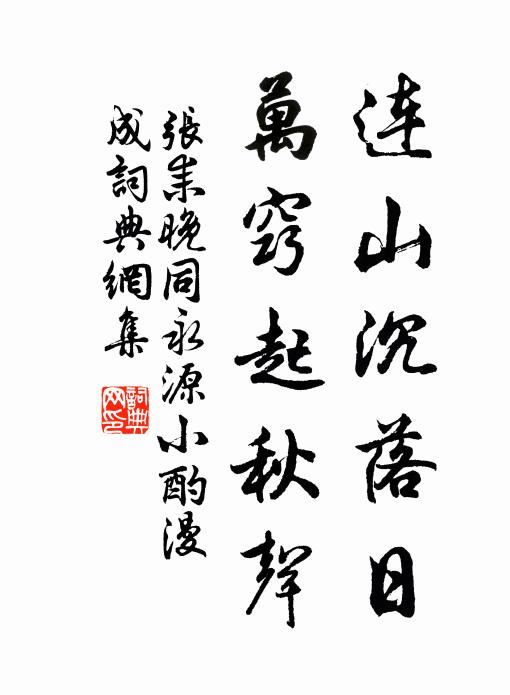 連山沉落日
萬竅起秋聲
張耒晚同永源小酌漫
成詞典網集
詞典
网印